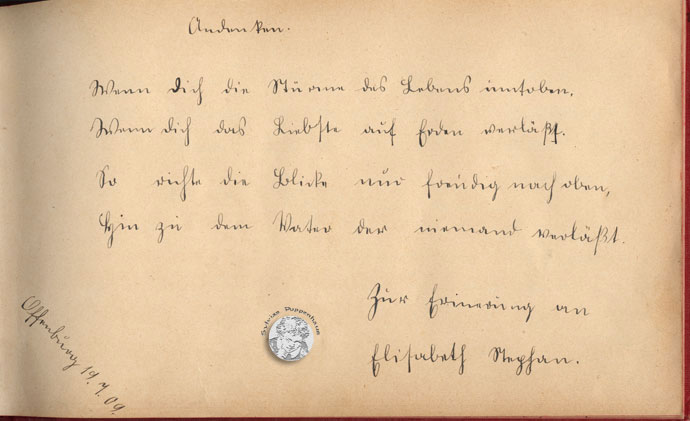 Andenken.
Wenn dich die Stürme des Lebens umtoben,
Wenn dich das Liebste auf Erden verläßt.
So richte die Blicke nur freudig nach oben,
Hin zu dem Vater der niemand verläßt.
Zur Erinerung an
Elisabeth Stephan.
Offenburg 19.7.09.
Sylvias Puppenhaus